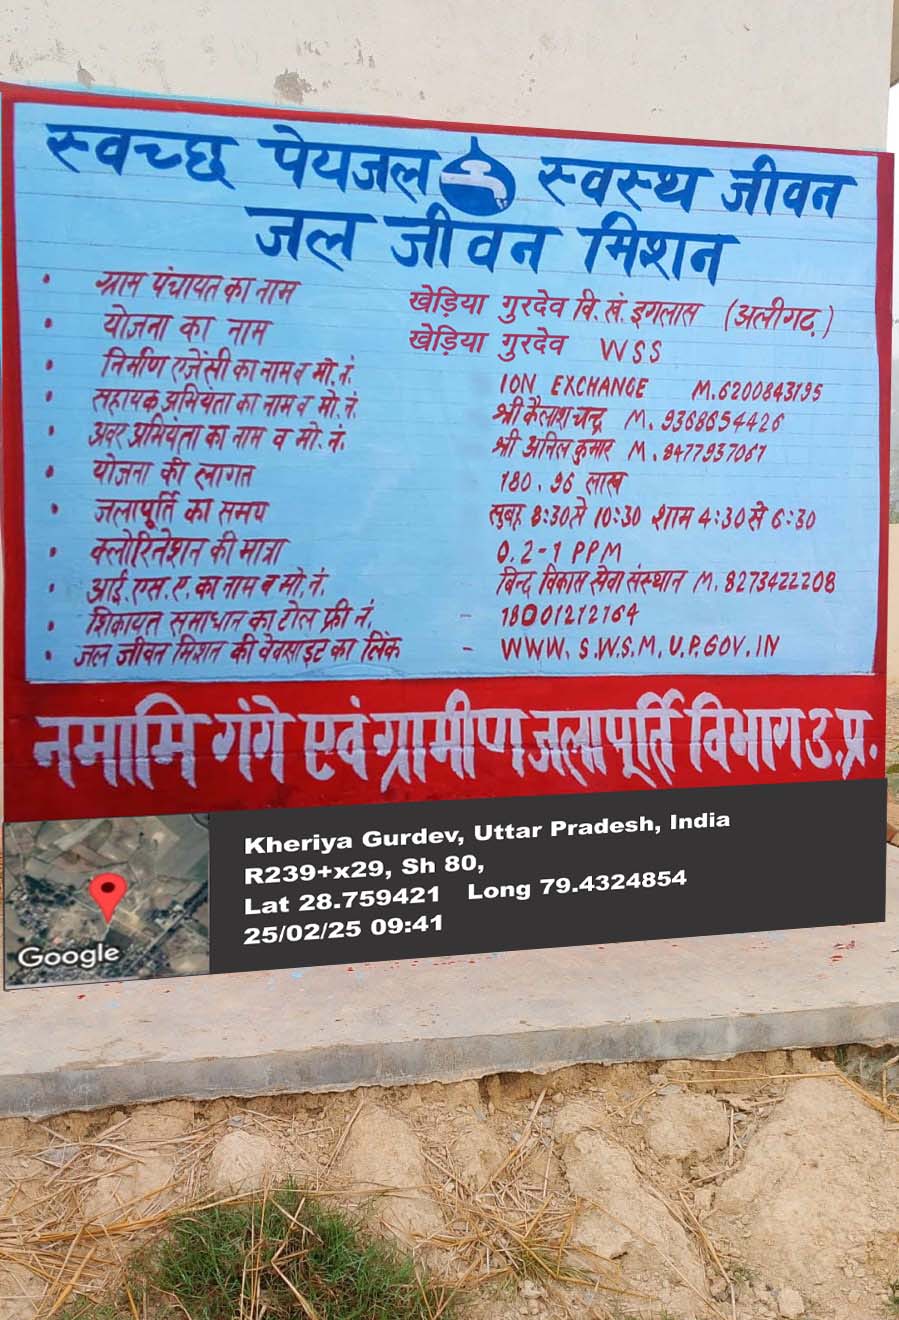 स्वच्छ पेयजल स्वस्थ जीवन
जल जीवन मिशन
• ग्राम पंचायत का नाम खेड़िया गुरदेव वि. खं. इगलास (अलीगढ़)
• योजना का नाम खेड़िया गुरदेव WSS
• निर्माण एजेंसी का नाम व मो. नं. ION EXCHANGE M. 6200843195
• सहायक अभियंता का नाम व मो. नं. श्री कैलाश चन्द्र M. 9368654426
• अवर अभियंता का नाम व मो. नं. श्री अनिल कुमार M. 8477937067
• योजना की लागत 180.96 लाख
• जलापूर्ति का समय सुबह 8:30 से 10:30 शाम 4:30 से 6:30
• क्लोरिनेशन की मात्रा 0.2-1 PPM
• आई. एस. ए. का नाम व मो. नं. बिन्द विकास सेवा संस्थान M. 8273422208
• शिकायत समाधान का टोल फ्री नं. - 18001212164
• जल जीवन मिशन की वेबसाइट का लिंक - WWW. S.W.S.M. U.P.GOV.IN
नमामि गंगे एवं ग्रामीण जलापूर्ति विभाग उ.प्र.
Kheriya Gurdev, Uttar Pradesh, India
R239+x29, Sh 80,
Lat 28.759421 Long 79.4324854
25/02/25 09:41
Google